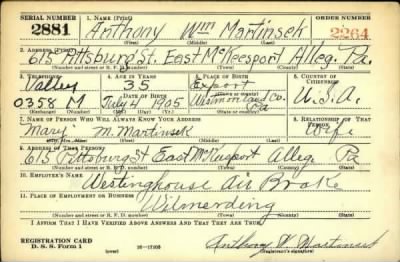 SERIAL NUMBER 1. NAME (Print) ORDER NUMBER
2881 Anthony Wm Martinsek 2264
(First) (Middle) (Last)
2. ADDRESS (Print)
615 Pittsburg St. East McKeesport Alleg. Pa.
(Number and street or R. F. D. number) (Town) (County) (State)
3. TELEPHONE 4. AGE IN YEARS 5. PLACE OF BIRTH 6. COUNTRY OF CITIZENSHIP
Valley 35 Export
DATE OF BIRTH (Town or county) U.S.A.
0358 M July 4 1905 Westmorland Co. Pa
(Exchange) (Number) (Mo.) (Day) (Yr.) (State or country)
7. NAME OF PERSON WHO WILL ALWAYS KNOW YOUR ADDRESS 8. RELATIONSHIP OF THAT PERSON
Mary M. Martinsek Wife
(Mr., Mrs., Miss) (First) (Middle) (Last)
9. ADDRESS OF THAT PERSON
615 Pittsburg St East McKeesport Alleg. Pa
(Number and street or R. F. D. number) (Town) (County) (State)
10. EMPLOYER'S NAME
Westinghouse Air Brake
11. PLACE OF EMPLOYMENT OR BUSINESS
Wilmerding
(Number and street or R. F. D. number) (Town) (County) (State)
I AFFIRM THAT I HAVE VERIFIED ABOVE ANSWERS AND THAT THEY ARE TRUE.
REGISTRATION CARD
D. S. S. Form 1 (over) 16—17105 Anthony W Martinsek
(Registrant's signature)